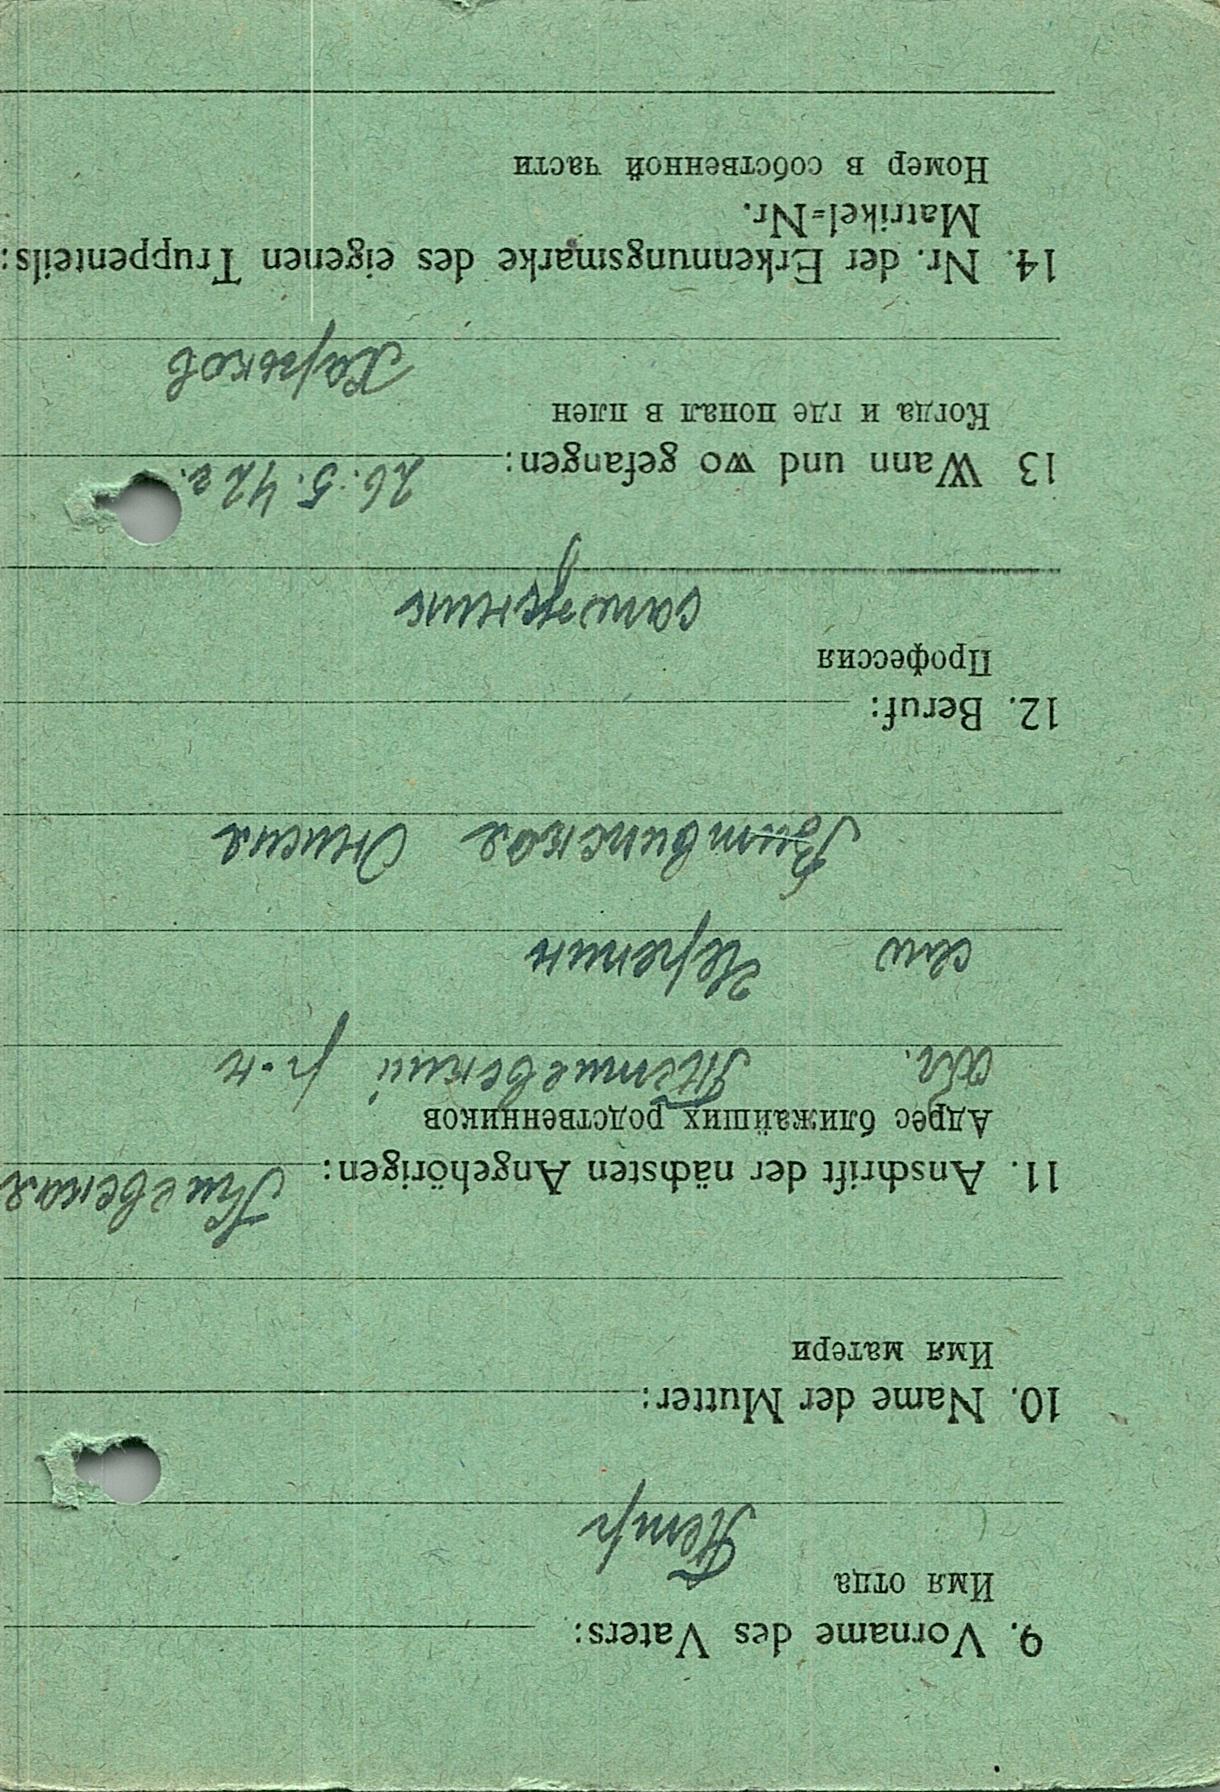 9. Vorname des Vaters:
Имя отца
Петр
10. Name der Mutter:
Имя матери
11. Anschrift der nächsten Angehörigen: Киевская
Адрес ближайших родственников
обл. Тетиевский р-н
Черепин
Витвинская Онисия
12. Beruf:
Профессия
сапожник
13 Wann und wo gefangen: 26.5.42 г.
Когда и где попал в плен
Харьков
14. Nr. der Erkennungsmarke des eigenen Truppenteils:
Matrikel=Nr.
Номер в собственной части